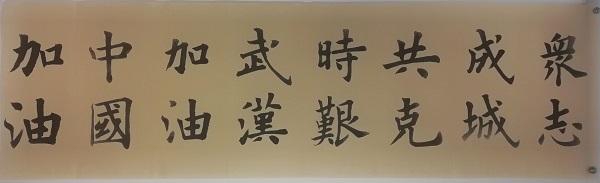 衆志
成城
共克
時艱
武漢
加油
中國
加油